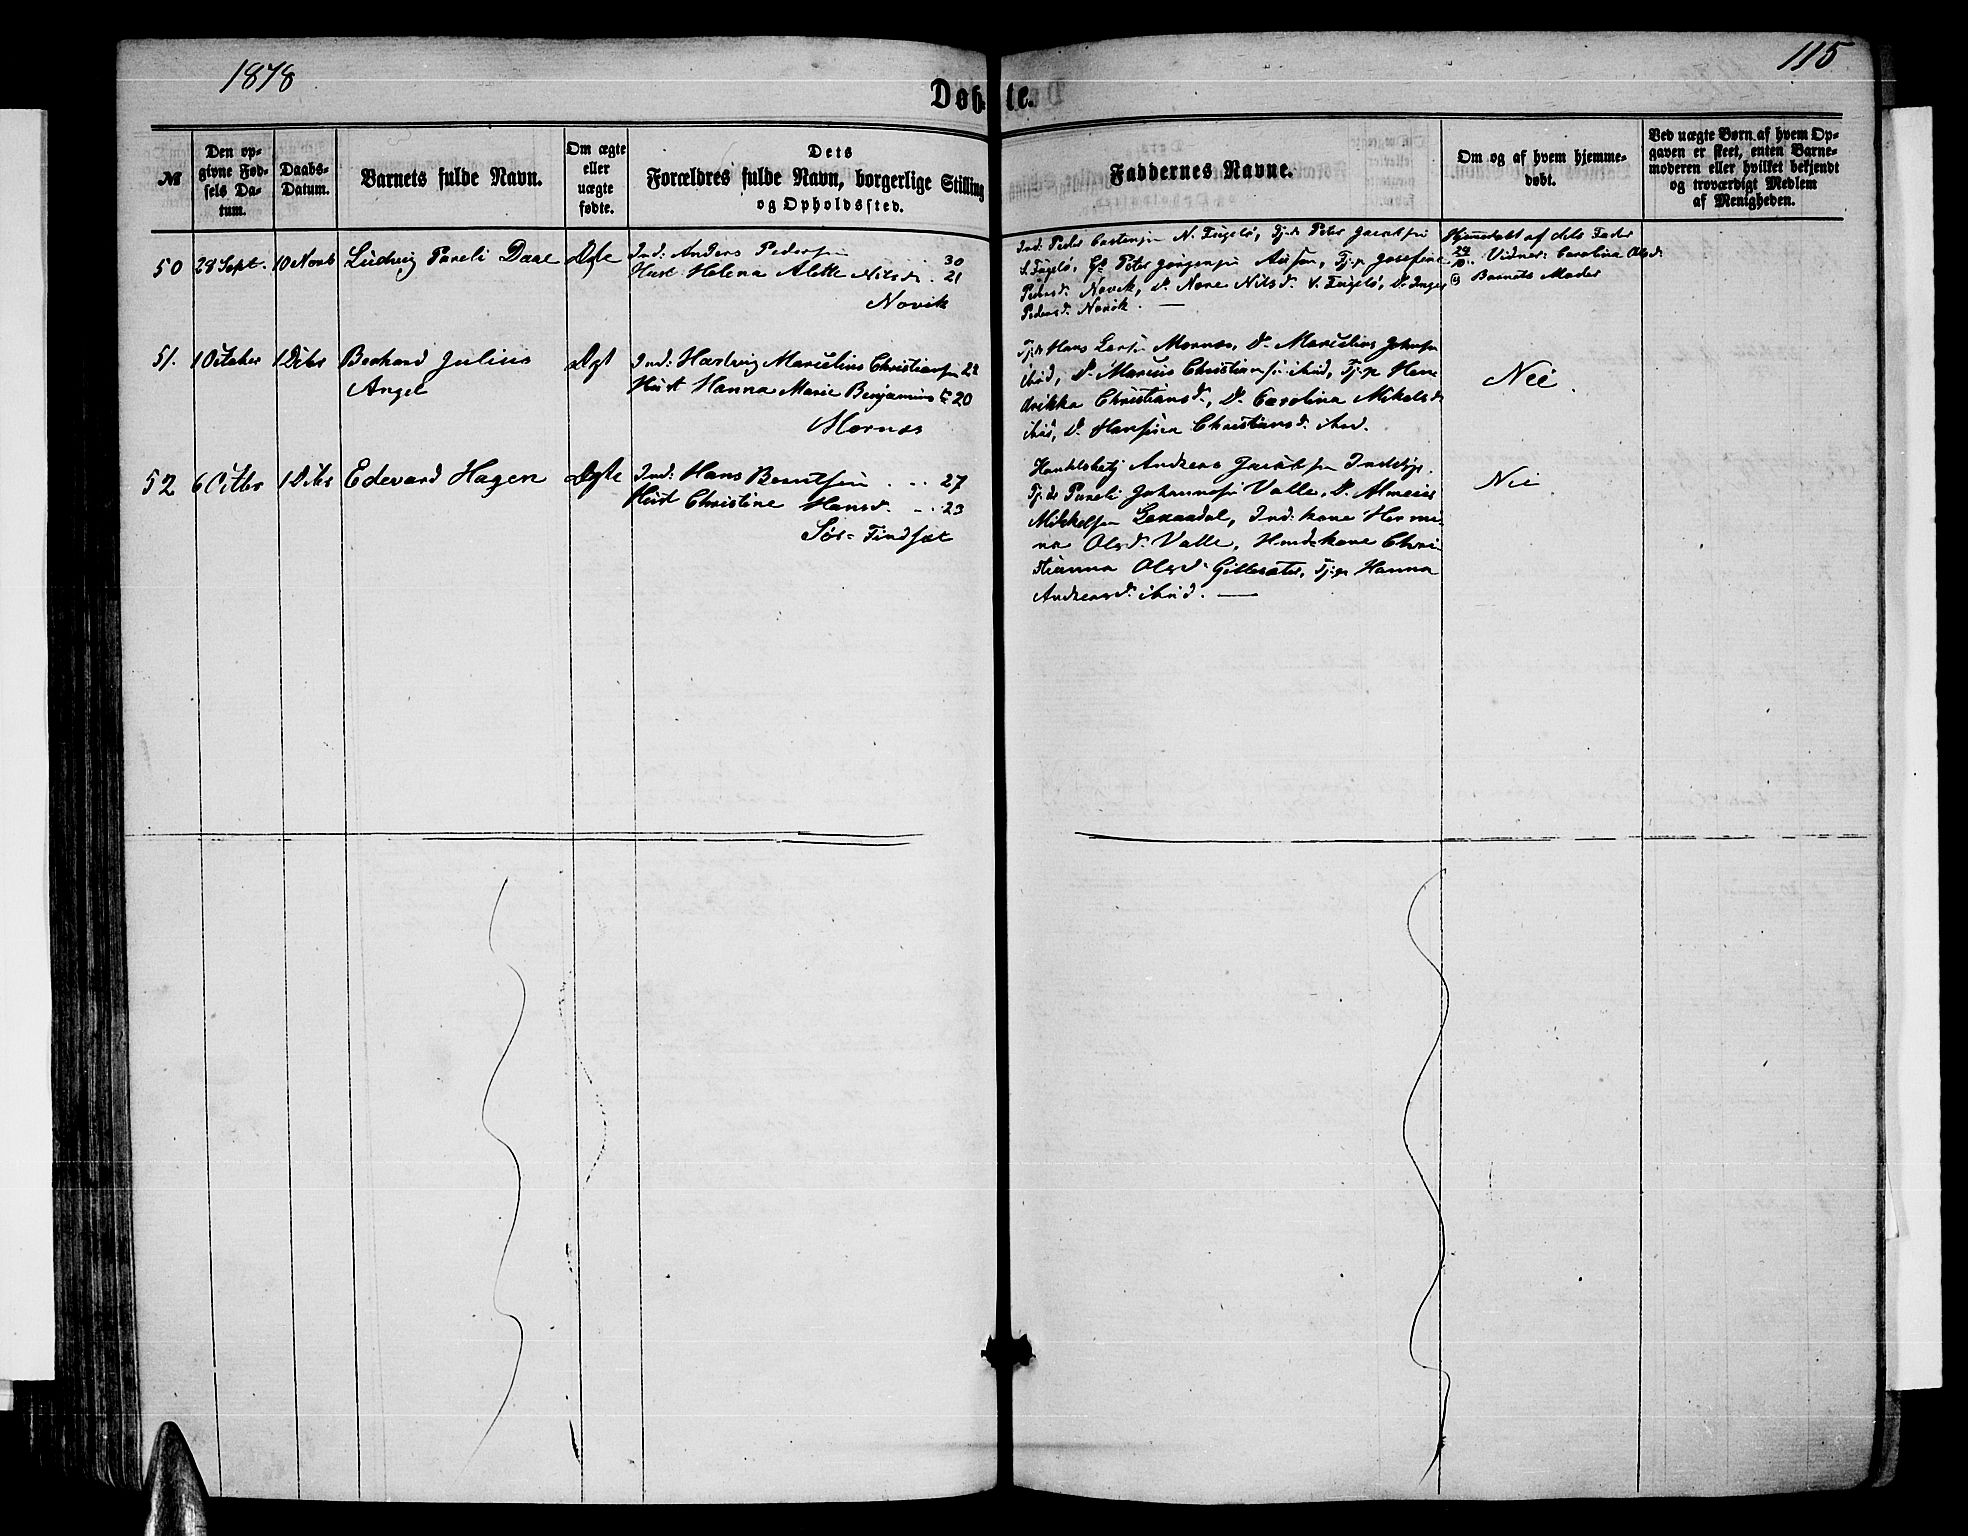 1878
115
Døbte.
№
Den op-
givne Fød-
sels Da-
tum.
Daabs-
Datum.
Barnets fulde Navn.
Om ægte
eller
uægte
fødte.
Dets
Forældres fulde Navn, borgerlige Stilling
og Opholdssted.
Faddernes Navne.
Om og af hvem hjemme-
døbt.
Ved uægte Børn af hvem Op-
gaven er skeet, enten Barne-
moderen eller hvilket bekjendt
og troværdigt Medlem
af Menigheden.
50 28 Sept. 10 Novb Ludvig Pareli Daae Ægte
Ind: Anders Pedersen 30
Hust Helena Alette Nilsd. 21
Novik
Ind. Peder N. Fugelø, Tj.dr Peter Jacobsen
S. Fugelø, Peter Jørgensen Tj.p Josefine
Pedersd. Novik, D. Nilsd. S. Fugelø, D. Inger
Pedersd. Novik.
Hjemedøbt af dets Fader
Vidner: Carolina Olsd.
Barnets Moder
51. 1 October 1 Dcbr Berhard Julius
Angel
Ægt
Ind: Hartvig Marselius Christiansen 22
Hust Hanna Marie Benjamins d 20
Mornæs
Tj.dr Hans Larsen Mornæs, D. Marselius Johnsen
ibid, D. Marius Christiansen ibid, Tj.p Hen
drikka Christiansd., D. Carolina Mikelsd
ibid, D. Hansina Christiansd. ibid.
Nei.
52 6 Octbr 1 Dcbr Edevard Hagen Ægte
Ind: Hans Berntsen 27
Hust Christine Hansd. 23
Sør-Findsæt
Handelsbetj Andreas Jacobsen
Tj.dr Pareli Johannesen Valle, D.
Mikkelsen Ind: kone Hermi-
na Olsd. Valle, Huuskone Chri
stianna Olsd. Tj.p Hanna
Andreasd. ibid.
Nei